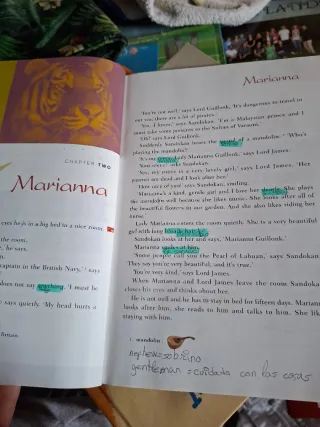 CHAPTER TWO
Marianna
eyes he is in a big bed in a nice room.
the room.
he says.
captain in the British Navy,' says
does not say anything. 'I must be
says quietly. 'My head hurts a
Marianna
'You're not well,' says Lord Guillonk. 'It's dangerous to travel to
out you there are a lot of pirates.'
'Yes, I know,' says Sandokan. 'I'm a Malaysian prince and I
must take some presents to the Sultan of Varauni.'
'Oh!' says Lord Guillonk.
Suddenly Sandokan hears the sound of a mandolin. 'Who's
playing the mandolin?'
'It's my niece, Lady Marianna Guillonk,' says Lord James.
'Your niece?' asks Sandokan.
'Yes, my niece is a very lovely girl,' says Lord James. 'Her
parents are dead and I look after her.'
'Take care of you' says Sandokan, smiling.
'Marianna's a kind, gentle girl and I love her dearly. She plays
the mandolin well because she likes music. She looks after all of
the beautiful flowers in our garden. And she also likes riding her
horse.'
Lady Marianna enters the room quietly. She is a very beautiful
girl with long blonde hair.
Sandokan looks at her and says, 'Marianna Guillonk.'
Marianna smiles at him.
'Some people call you the Pearl of Labuan,' says Sandokan.
'They say you're very beautiful, and it's true.'
'You're very kind,' says Lord James.
When Marianna and Lord James leave the room Sandokan
closes his eyes and thinks about her.
He is not well and he has to stay in bed for fifteen days. Marianna
looks after him, she reads to him and talks to him. She likes
staying with him.
1. mandolin
nephew=sobrino
gentleman = cuidado con las cosas